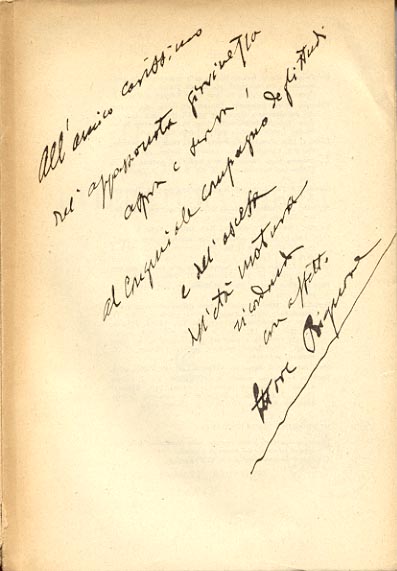 All'amico carissimo
nell'appassionata giovinezza
aspra e serena,
al congeniale compagno degli studi
e dell'ascesa
nell'età matura
ricordando
con affetto.
Ettore Bignone